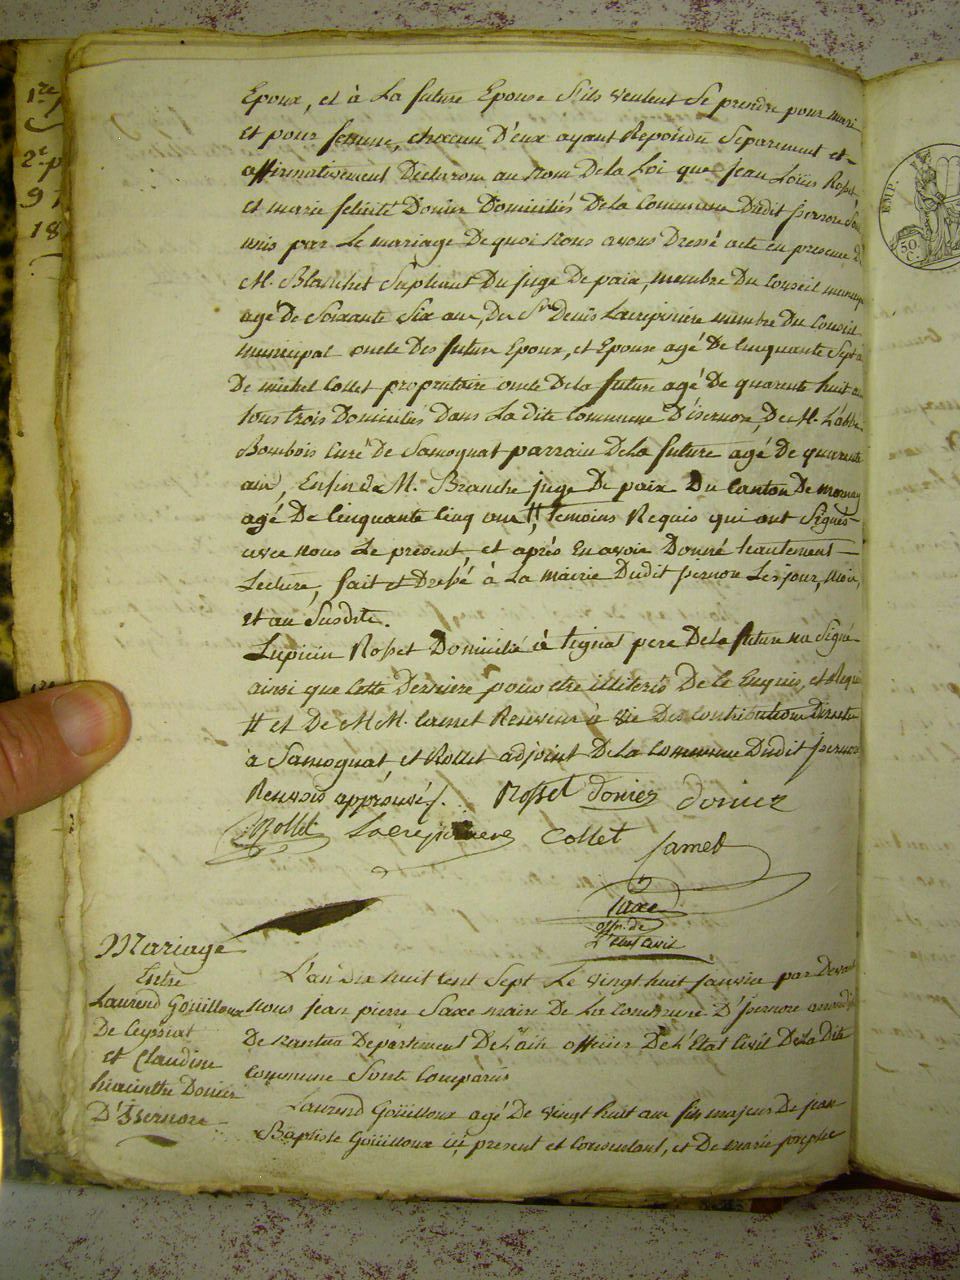 Epoux, et à La future Epouse s'ils veulent Se prendre pour mari
et pour femme, chacun D'eux ayant Repondu Séparement et
affirmativement Déclarons au Nom De la Loi que Jean Loüis Rosset
et marie felicité Donier Domiciliés De la Commune Dudit Isernore Sont
unis par Le mariage De quoi Nous avons Dressé acte en presence De
M. Blanchet Supleant Du Juge De paix, membre Du Conseil municip
agé De Soixante Six ans, De Sr Denis Lacrepiniere membre Du Conseil
municipal oncle Des future Epoux, et Epouse agé De Cinquante Sept a
De michel Collet proprietaire oncle De la future agé De quarente huit an
tous trois Domiciliés Dans La dite Commune D'isernore, De M. L'abbé
Bombois Curé De Samognat parrain De la future agé De quarente
ans, Enfin De M. Branche juge De paix Du Canton De mornay
agé De Cinquante Cinq ans # temoins Requis qui ont Signés
avec nous Le présent, et après En avoir Donné hautement
Lecture, fait et Dressé à La mairie Dudit Isernore Les jour, Mois,
et an Susdits.
Lupicin Rosset Domicilié à tignat pere De la future na Signé
ainsi que Cette Derniere pour etre illiterés De Ce Enquis, et Requis
# et De M.M. Camet Receveur à vie Des Contributions Directes
à Samognat et Rollet adjoint De la Commune Dudit Isernore
Renvois approuvés. Rosset donier donier
Rollet Lacrepiniere Collet Jamet
Saxe
offr. de
L'état civil
Mariage
Entre
Laurend Goüilloux
De Ceyssiat
et Claudine
hiacinthe Donier
D'Isernore
L'an Dix huit cent Sept Le vingt huit Janvier par Devant
Nous jean pierre Saxe maire De La Commune D'Isernore arrondist
De Nantua Département De L'ain officier De L'Etat Civil De La Dite
Commune Sont Comparus
Laurend Goüilloux agé De vingt huit ans fils majeur De jean
Baptiste Goüilloux ici present et Consentant, et De marie josephe
1re p
2e p
97
18
EMP.
50
C.